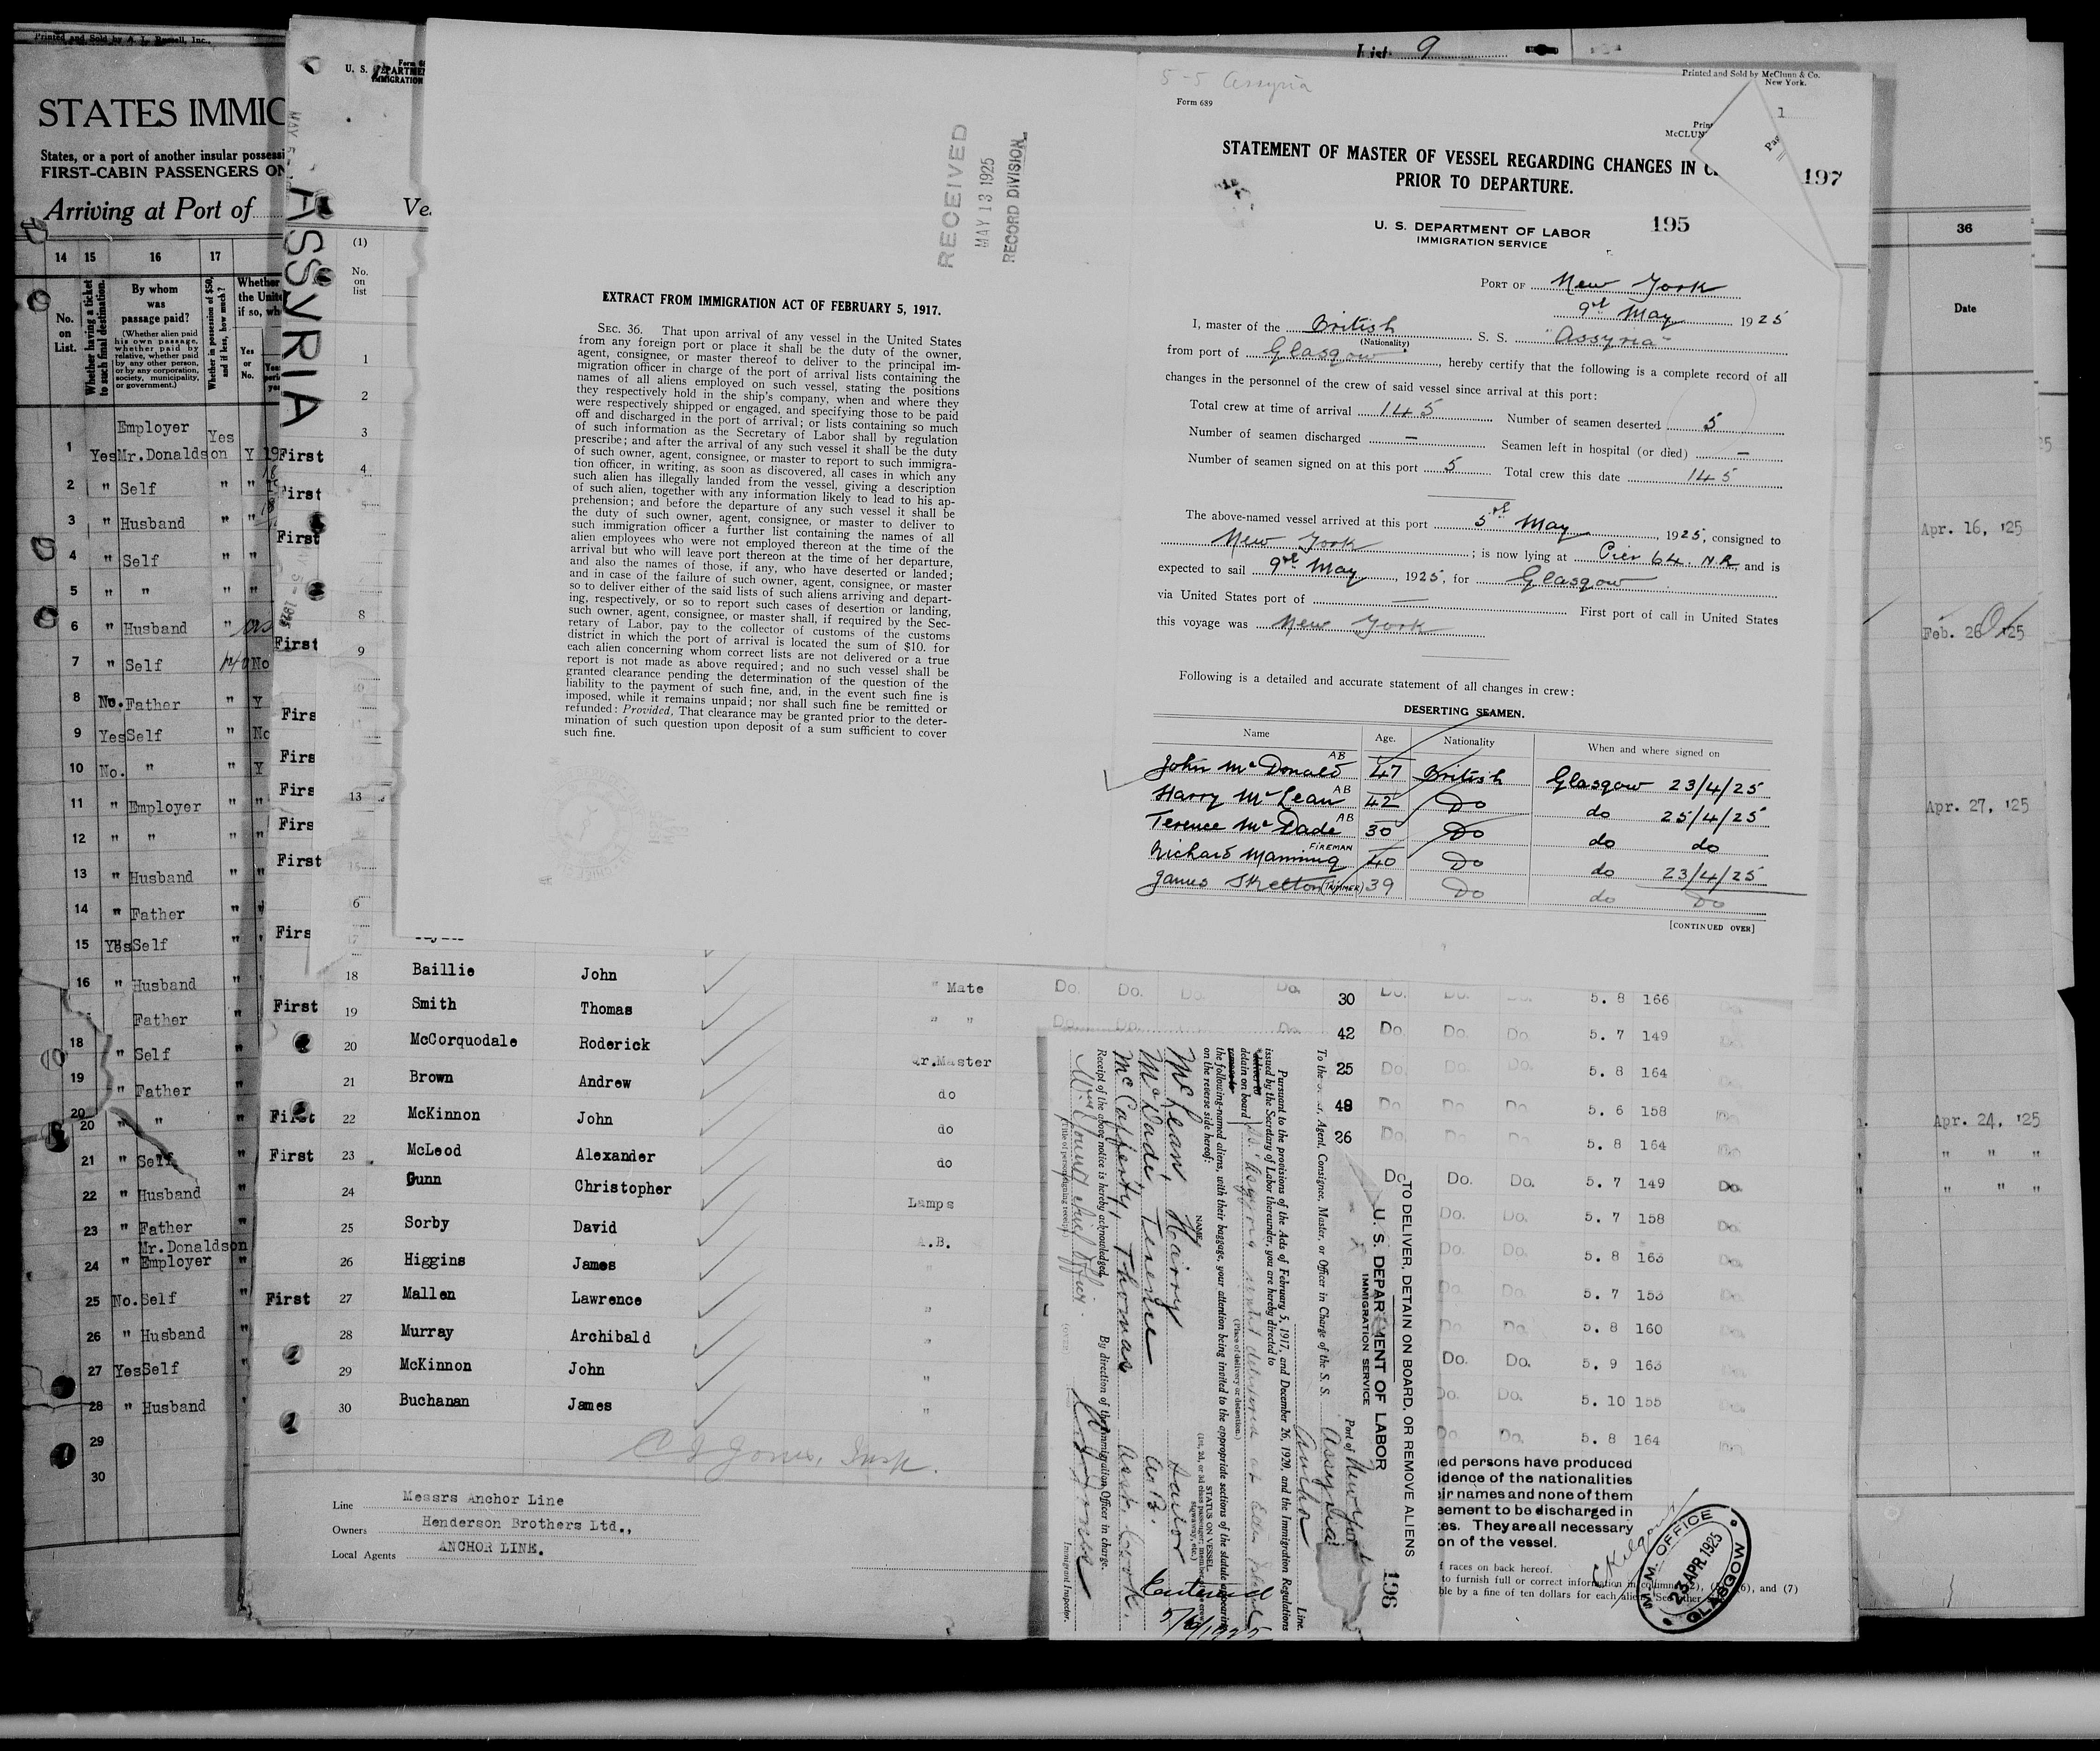 Printed and Sold by A. L. Russell, Inc.,
STATES IMMIG
States, or a port of another insular possessi
FIRST-CABIN PASSENGERS ON
Arriving at Port of
14 15 16 17
No. on List.
Whether having a ticket to such final destination.
By whom was passage paid?
(Whether alien paid his own passage, whether paid by relative, whether paid by any other person, or by any corporation, society, municipality, or government.)
Whether in possession of $50, and if less, how much?
Whether
the Unite
if so, wh
Yes or No.
1 Yes Employer Mr. Donaldson Yes Y 19
2 " Self " "
3 " Husband " "
4 " Self " "
5 " " " "
6 " Husband "
7 " Self No
8 No. Father " Y
9 Yes Self " No
10 No. " " Y
11 " Employer " "
12 " " " "
13 " Husband " "
14 " Father "
15 Yes Self "
16 " Husband "
Father "
18 " Self "
19 " Father "
20 " " "
21 " Self "
22 " Husband "
23 " Father "
24 " Mr. Donaldson Employer "
25 No. Self "
26 " Husband "
27 Yes Self
28 " Husband
29
30
U. S. DEPARTMEN
IMMIGRATION
MAY 5 -
ASSYRIA
Ve
(1)
No. on list
1
2
3
First
4
First
First
8
First
9
Firs
Firs
Firs
13
Firs
First
Firs
18 Baillie John " Mate Do. Do. Do. Do. 30 Do. Do. Do. 5. 8 166
First 19 Smith Thomas " " Do. Do. Do. 42 Do. Do. Do. 5. 7 149
20 McCorquodale Roderick Qr.Master 25 Do. Do. Do. 5. 8 164
21 Brown Andrew do 48 Do. Do. Do. 5. 6 158
First 22 McKinnon John do 26 Do. Do. Do. 5. 8 164
First 23 McLeod Alexander do Do. Do. Do. 5. 7 149 Do.
24 Gunn Christopher Lamps Do. Do. 5. 7 158 Do.
25 Sorby David A.B. Do. Do. 5. 8 163 Do.
26 Higgins James " Do. Do. 5. 7 153 Do.
First 27 Mallen Lawrence " Do. Do. 5. 8 160 Do.
28 Murray Archibald " Do. Do. 5. 9 163 Do.
29 McKinnon John " Do. Do. 5. 10 155 Do.
30 Buchanan James " Do. Do. 5. 8 164 Do.
C I Jones, Insp.
Line Messrs Anchor Line
Owners Henderson Brothers Ltd.,
Local Agents ANCHOR LINE.
RECEIVED
MAY 13 1925
RECORD DIVISION
EXTRACT FROM IMMIGRATION ACT OF FEBRUARY 5, 1917.
SEC. 36. That upon arrival of any vessel in the United States
from any foreign port or place it shall be the duty of the owner,
agent, consignee, or master thereof to deliver to the principal im-
migration officer in charge of the port of arrival lists containing the
names of all aliens employed on such vessel, stating the positions
they respectively hold in the ship's company, when and where they
were respectively shipped or engaged, and specifying those to be paid
off and discharged in the port of arrival; or lists containing so much
of such information as the Secretary of Labor shall by regulation
prescribe; and after the arrival of any such vessel it shall be the duty
of such owner, agent, consignee, or master to report to such immigra-
tion officer, in writing, as soon as discovered, all cases in which any
such alien has illegally landed from the vessel, giving a description
of such alien, together with any information likely to lead to his ap-
prehension; and before the departure of any such vessel it shall be
the duty of such owner, agent, consignee, or master to deliver to
such immigration officer a further list containing the names of all
alien employees who were not employed thereon at the time of the
arrival but who will leave port thereon at the time of her departure,
and also the names of those, if any, who have deserted or landed;
and in case of the failure of such owner, agent, consignee, or master
so to deliver either of the said lists of such aliens arriving and depart-
ing, respectively, or so to report such cases of desertion or landing,
such owner, agent, consignee, or master shall, if required by the Sec-
retary of Labor, pay to the collector of customs of the customs
district in which the port of arrival is located the sum of $10. for
each alien concerning whom correct lists are not delivered or a true
report is not made as above required; and no such vessel shall be
granted clearance pending the determination of the question of the
liability to the payment of such fine, and, in the event such fine is
imposed, while it remains unpaid; nor shall such fine be remitted or
refunded: Provided, That clearance may be granted prior to the deter-
mination of such question upon deposit of a sum sufficient to cover
such fine.
List 9
5-5 Assyria
Form 689
Printed and Sold by McClunn & Co.
New York.
1
Print
McCLUN
197
STATEMENT OF MASTER OF VESSEL REGARDING CHANGES IN C
PRIOR TO DEPARTURE.
U. S. DEPARTMENT OF LABOR
IMMIGRATION SERVICE
195
PORT OF New York
9th May 1925
I, master of the British S. S. "Assyria"
(Nationality)
from port of Glasgow, hereby certify that the following is a complete record of all
changes in the personnel of the crew of said vessel since arrival at this port:
Total crew at time of arrival 145 Number of seamen deserted 5
Number of seamen discharged — Seamen left in hospital (or died) —
Number of seamen signed on at this port 5 Total crew this date 145
The above-named vessel arrived at this port 5th May, 1925, consigned to
New York; is now lying at Pier 64. N.R. and is
expected to sail 9th May, 1925, for Glasgow
via United States port of — First port of call in United States
this voyage was New York
Following is a detailed and accurate statement of all changes in crew:
DESERTING SEAMEN.
Name Age. Nationality When and where signed on
John McDonald AB 47 British Glasgow 23/4/25
Harry McLean AB 42 Do do 25/4/25
Terence McDade AB 30 Do do do
Richard Manning FIREMAN 40 Do do 23/4/25
James Skelton (TRIMMER) 39 Do do Do
[CONTINUED OVER]
36
Date
Apr. 16, '25
Feb. 26 '25
Apr. 27, '25
Apr. 24, '25
" " "
" " "
196
TO DELIVER, DETAIN ON BOARD, OR REMOVE ALIENS
U. S. DEPARTMENT OF LABOR
IMMIGRATION SERVICE
Port of New York
Anchor Line.
To the Agent, Consignee, Master, or Officer in Charge of the S. S. Assyria
Pursuant to the provisions of the Acts of February 5, 1917, and December 26, 1920, and the Immigration Regulations
issued by the Secretary of Labor thereunder, you are hereby directed to
detain on board
(Place of delivery or detention.)
the following-named aliens, with their baggage, your attention being invited to the appropriate sections of the statute appearing
on the reverse side hereof:
NAME. STATUS ON VESSEL.
McLean, Harry Sailor
McDade, Terence A.B.
McCafferty, Thomas Asst. Cook.
By direction of the Immigration Officer in charge.
Immigrant Inspector.
Receipt of the above notice is hereby acknowledged.
Chief Officer.
(Title of person signing receipt.)
(OVER)
ed persons have produced
idence of the nationalities
eir names and none of them
eement to be discharged in
es. They are all necessary
on of the vessel.
f races on back hereof.
to furnish full or correct information in columns (2), (6), and (7)
ble by a fine of ten dollars for each alien. See other
M. M. OFFICE
23 APR 1925
GLASGOW